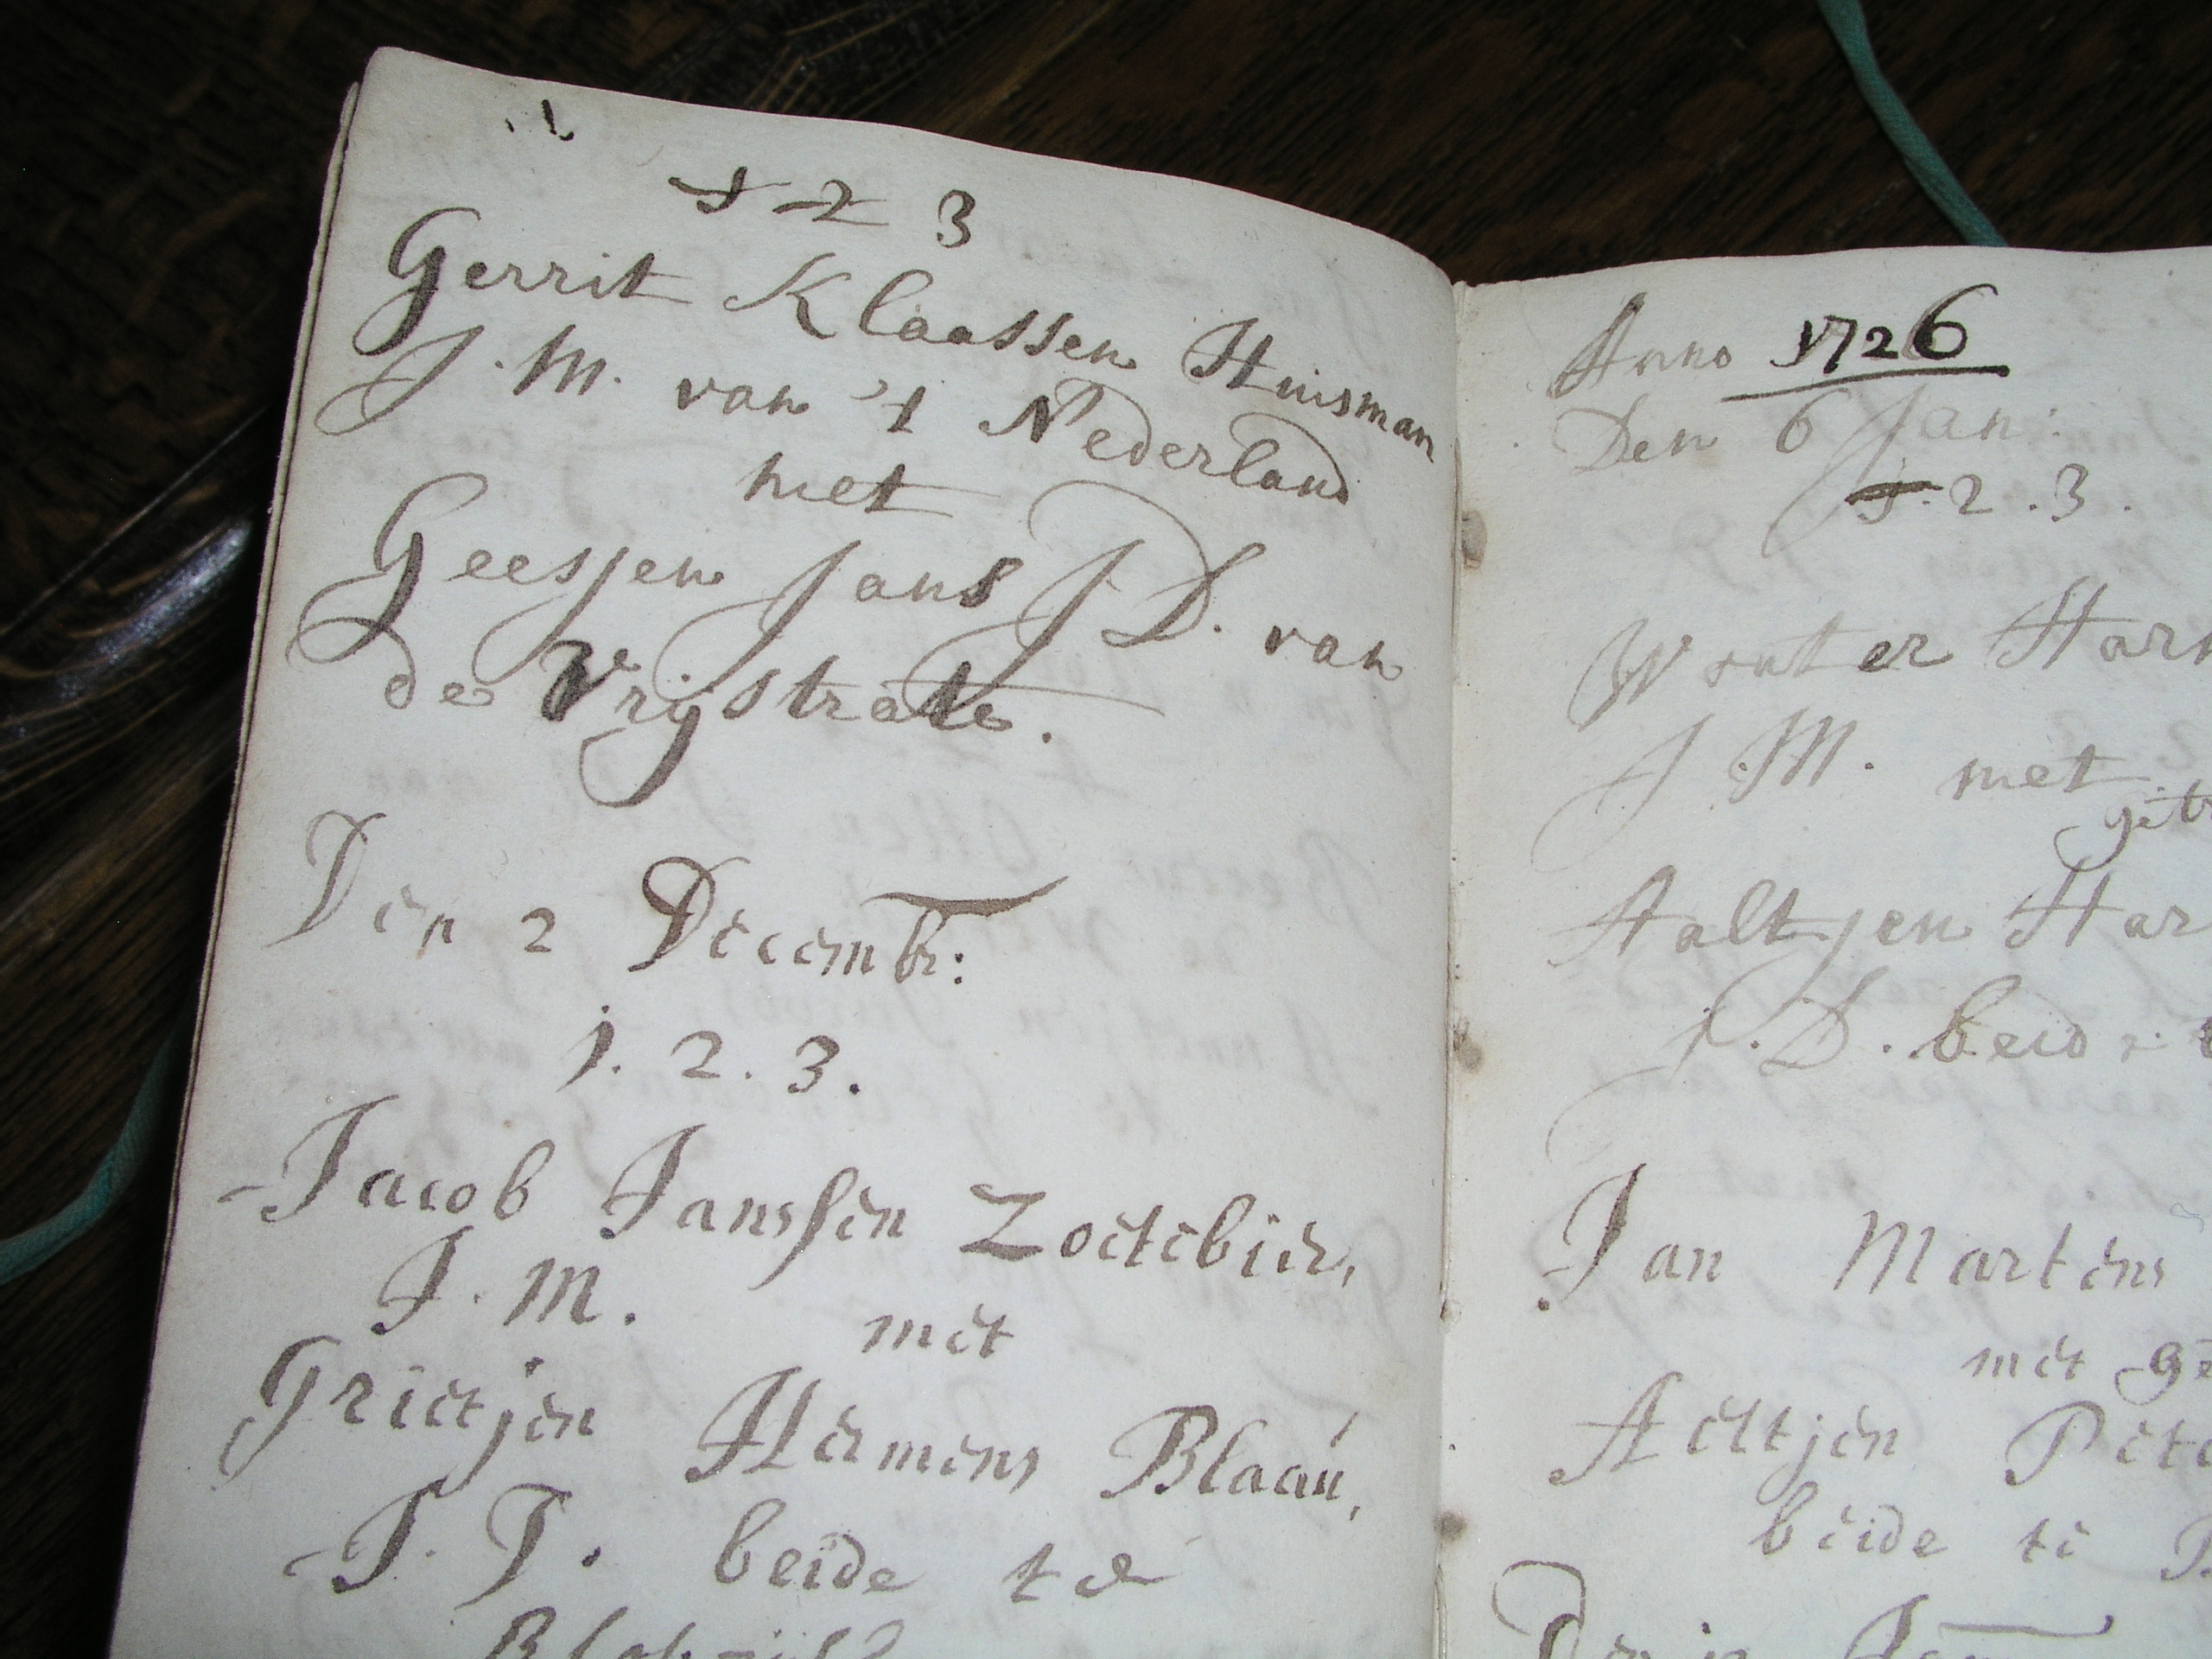 1 2 3
Gerrit Klaassen Huisman
J. M. van 't Nederland
met
Geesjen Jans J D. van
de Vrijstrate.
Den 2 Decembr:
1. 2. 3.
Jacob Janssen Zoetebier,
J. M. met
Grietjen Hermens Blaaú,
J. D. beide te
Anno 1726
Den 6 Jan:
1. 2. 3.
Wouter Har
J. M. met
Aaltjen Har
J. D. beide
Jan Martens
met ge
Aeltjen Pete
beide te